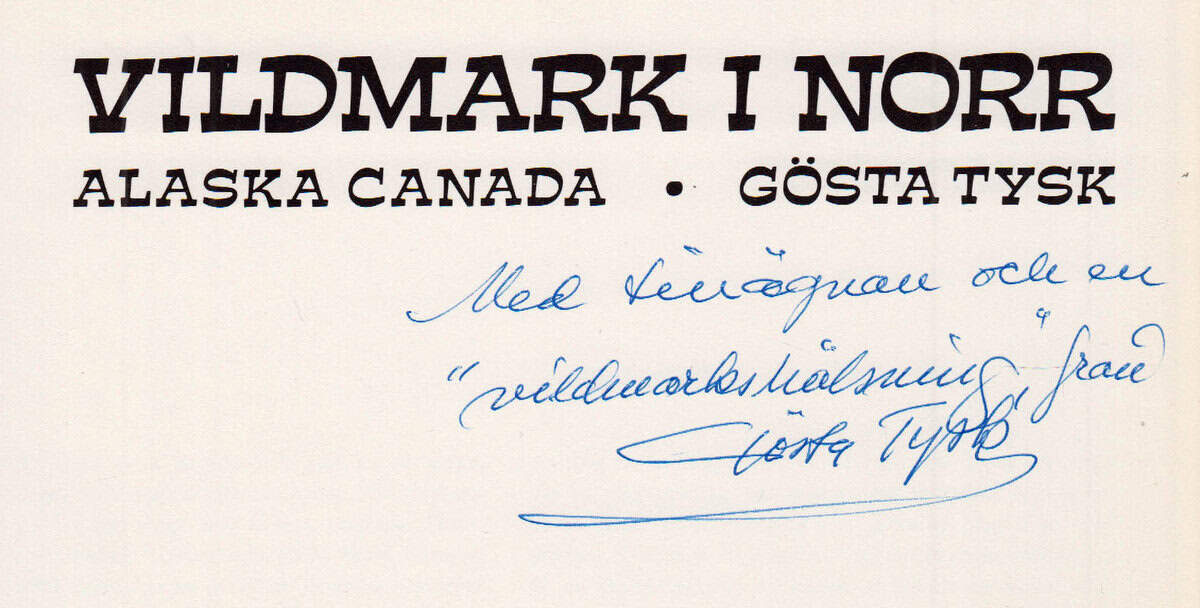 VILDMARK I NORR
ALASKA CANADA • GÖSTA TYSK
Med tillägnan och en
"vildmarkshälsning" från
Gösta Tysk